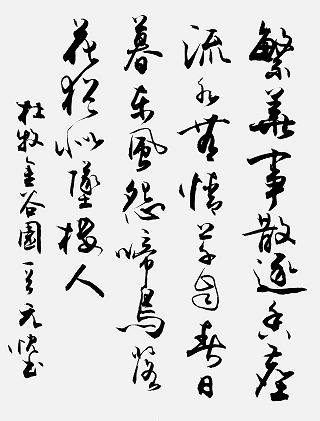 繁華事散逐香塵
流水無情草自春日
暮東風怨啼鳥落
花猶似墜樓人
杜牧金谷園 元 書